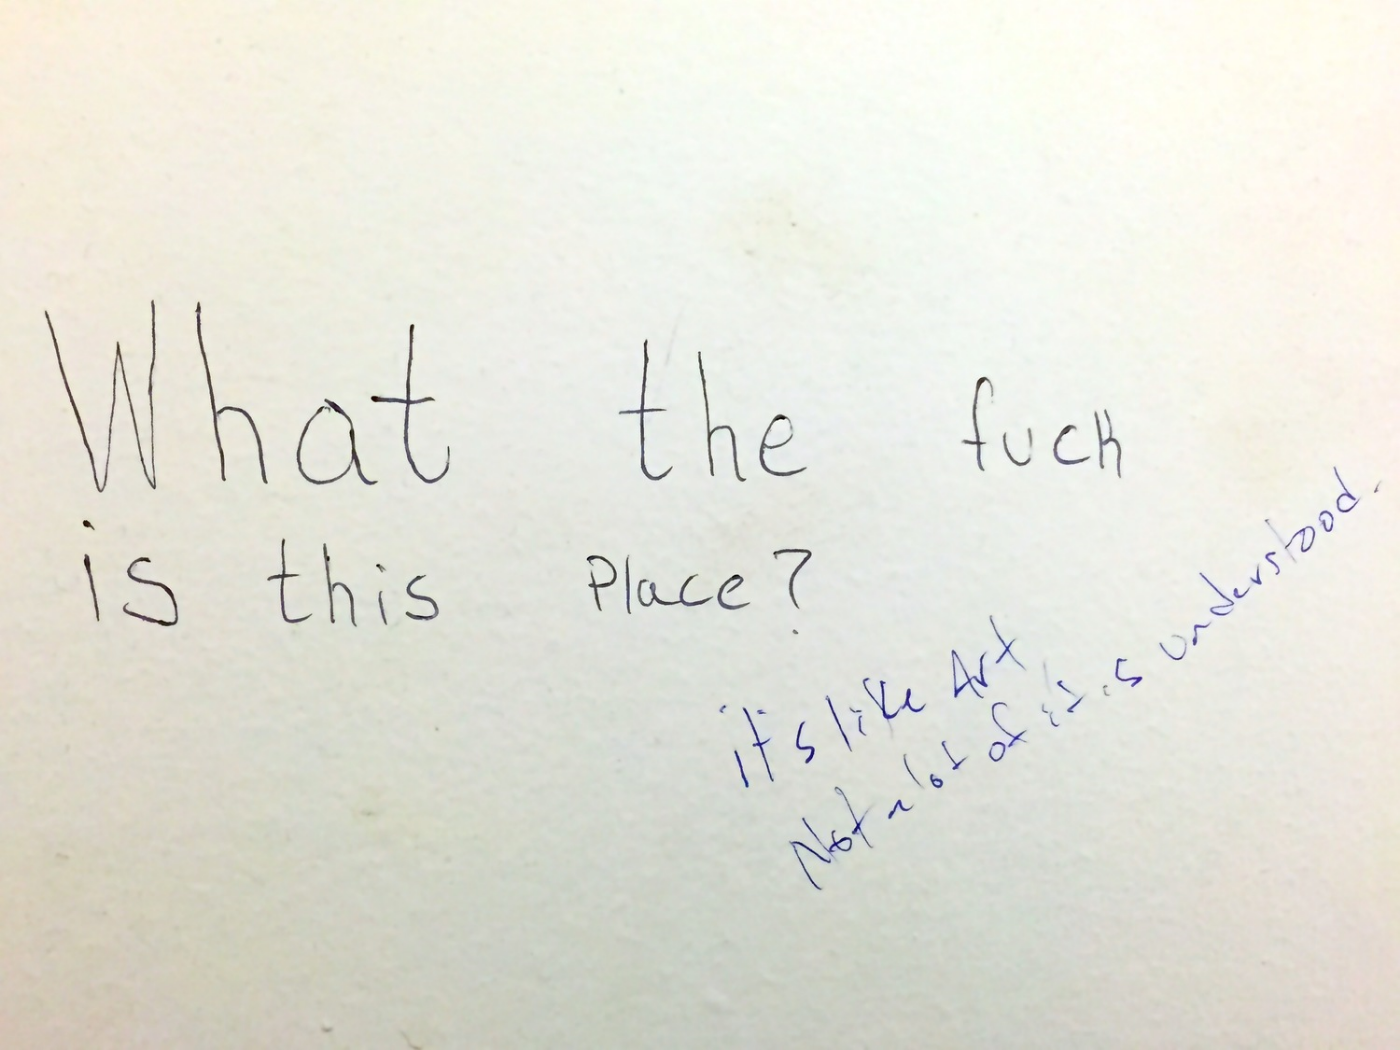 What the fuck
is this Place?
it's like Art
Not a lot of it is understood.